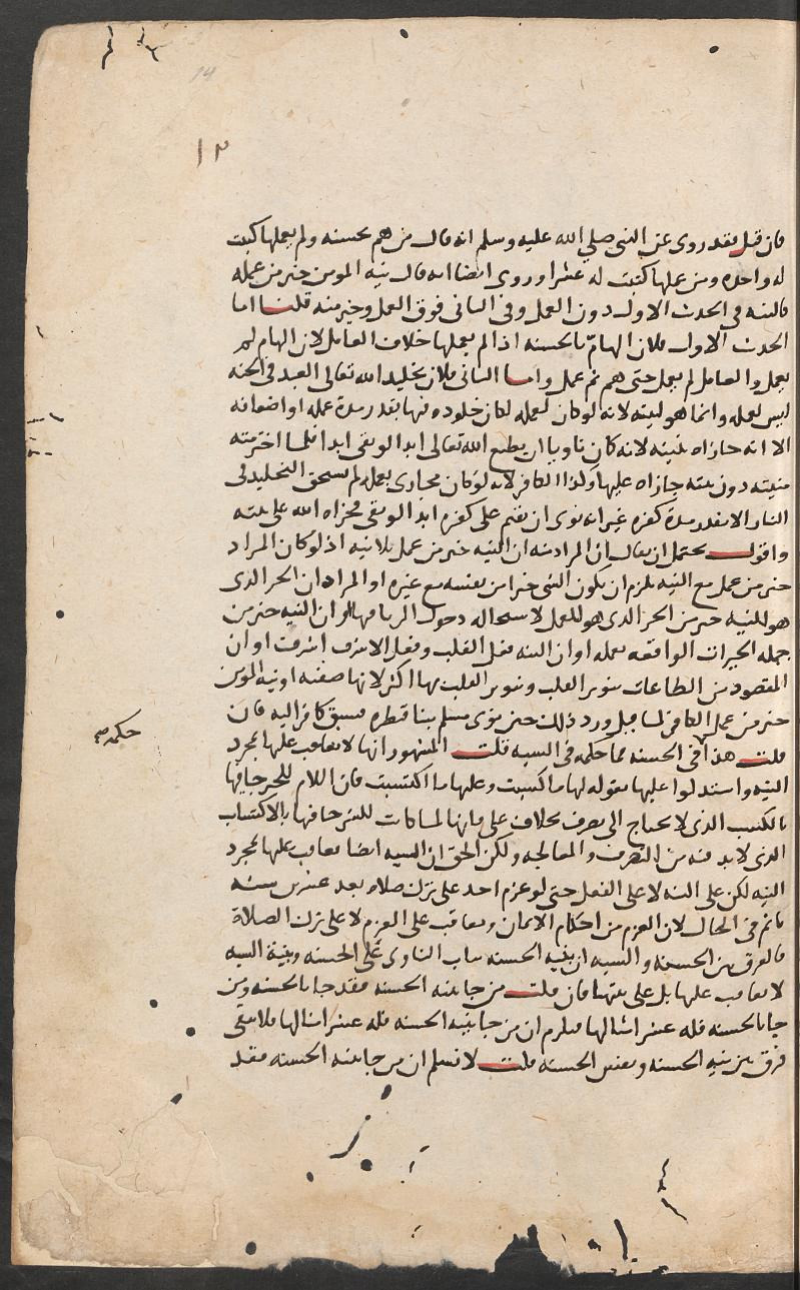 ١٣
فان قيل فقد روى عن النبي صلي الله عليه وسلم انه قال من هم بحسنه ولم يعملها كتبت
له واحده ومن عملها كتبت له عشرا وروى ايضا انه قال نيه المومن خير من عمله
فالنيه في الحديث الاول دون العمل وفي الثاني فوق العمل وخير منه قلنا اما
الحديث الاول فلان الهام بالحسنه اذا لم يعملها خلاف العامل لان الهام لم
يعمل والعامل لم يعمل حتى هم ثم عمل واما الثاني فلان تخليد الله تعالى العبد في الجنه
ليس لعمله وانما هو لنيته لانه لو كان لعمله لكان خلوده فيها بقدر مدة عمله او اضعافه
الا انه جازاه بنيته لانه كان ناويا ان يطيع الله تعالى ابدا لو بقي ابدا فلما اخترمته
منيته دون نيته جازاه عليها وكذا الكافر لانه لو كان يجازى بعمله لم يستحق التخليد في
النار الا بقدر مدة كفره غير انه نوى ان يقيم على كفره ابدا لو بقي فجزاه الله على نيته
واقول يحتمل ان يقال ان المراد منه ان النيه خير من عمل بلا نيه اذ لو كان المراد
خير من عمل مع النيه يلزم ان يكون الشي خيرا من نفسه مع غيره او المراد ان الجز الذى
هو للنيه خير من الجز الذى هو للعمل لاستحاله دخول الريا فيها او ان النيه خير من
جمله الخيرات الواقعه بعمله او ان النيه فعل القلب وفعل الاشرف اشرف او ان
المقصود من الطاعات تنوير القلب وتنوير القلب بها اكثر لانها صفته او نيه المومن
خير من عمل الكافر لما قيل ورد ذلك حين نوى مسلم بنا قنطره فسبق كافر اليه فان
قلت هذا في الحسنه فما حكمه في السيه قلت المشهور انها لا يعاقب عليها بمجرد
حكمه
النيه واستدلوا عليها بقوله لها ما كسبت وعليها ما اكتسبت فان اللام للخير جا فيها
بالكسب الذى لا يحتاج الى تصرف بخلاف على فانها لما كانت للشر جا فيها بالاكتساب
الذى لا بد فيه من التصرف والمعالجه ولكن الحق ان السيه ايضا يعاقب عليها بمجرد
النيه لكن على النيه لا على الفعل حتى لو عزم احد على ترك صلاه بعد عشرين سنه
ياثم في الحال لان العزم من احكام الايمان ويعاقب على العزم لا على ترك الصلاة
فالفرق بين الحسنه والسيه ان بنيه الحسنه يثاب الناوى على الحسنه وبنية السيه
لا يعاقب عليها بل على نيتها فان قلت من جا بنيه الحسنه فقد جا بالحسنه ومن
جا بالحسنه فله عشر امثالها فيلزم ان من جا بنيه الحسنه فله عشر امثالها فلا يبقى
فرق بين نيه الحسنه ونفس الحسنه قلت لا نسلم ان من جا بنيه الحسنه فقد